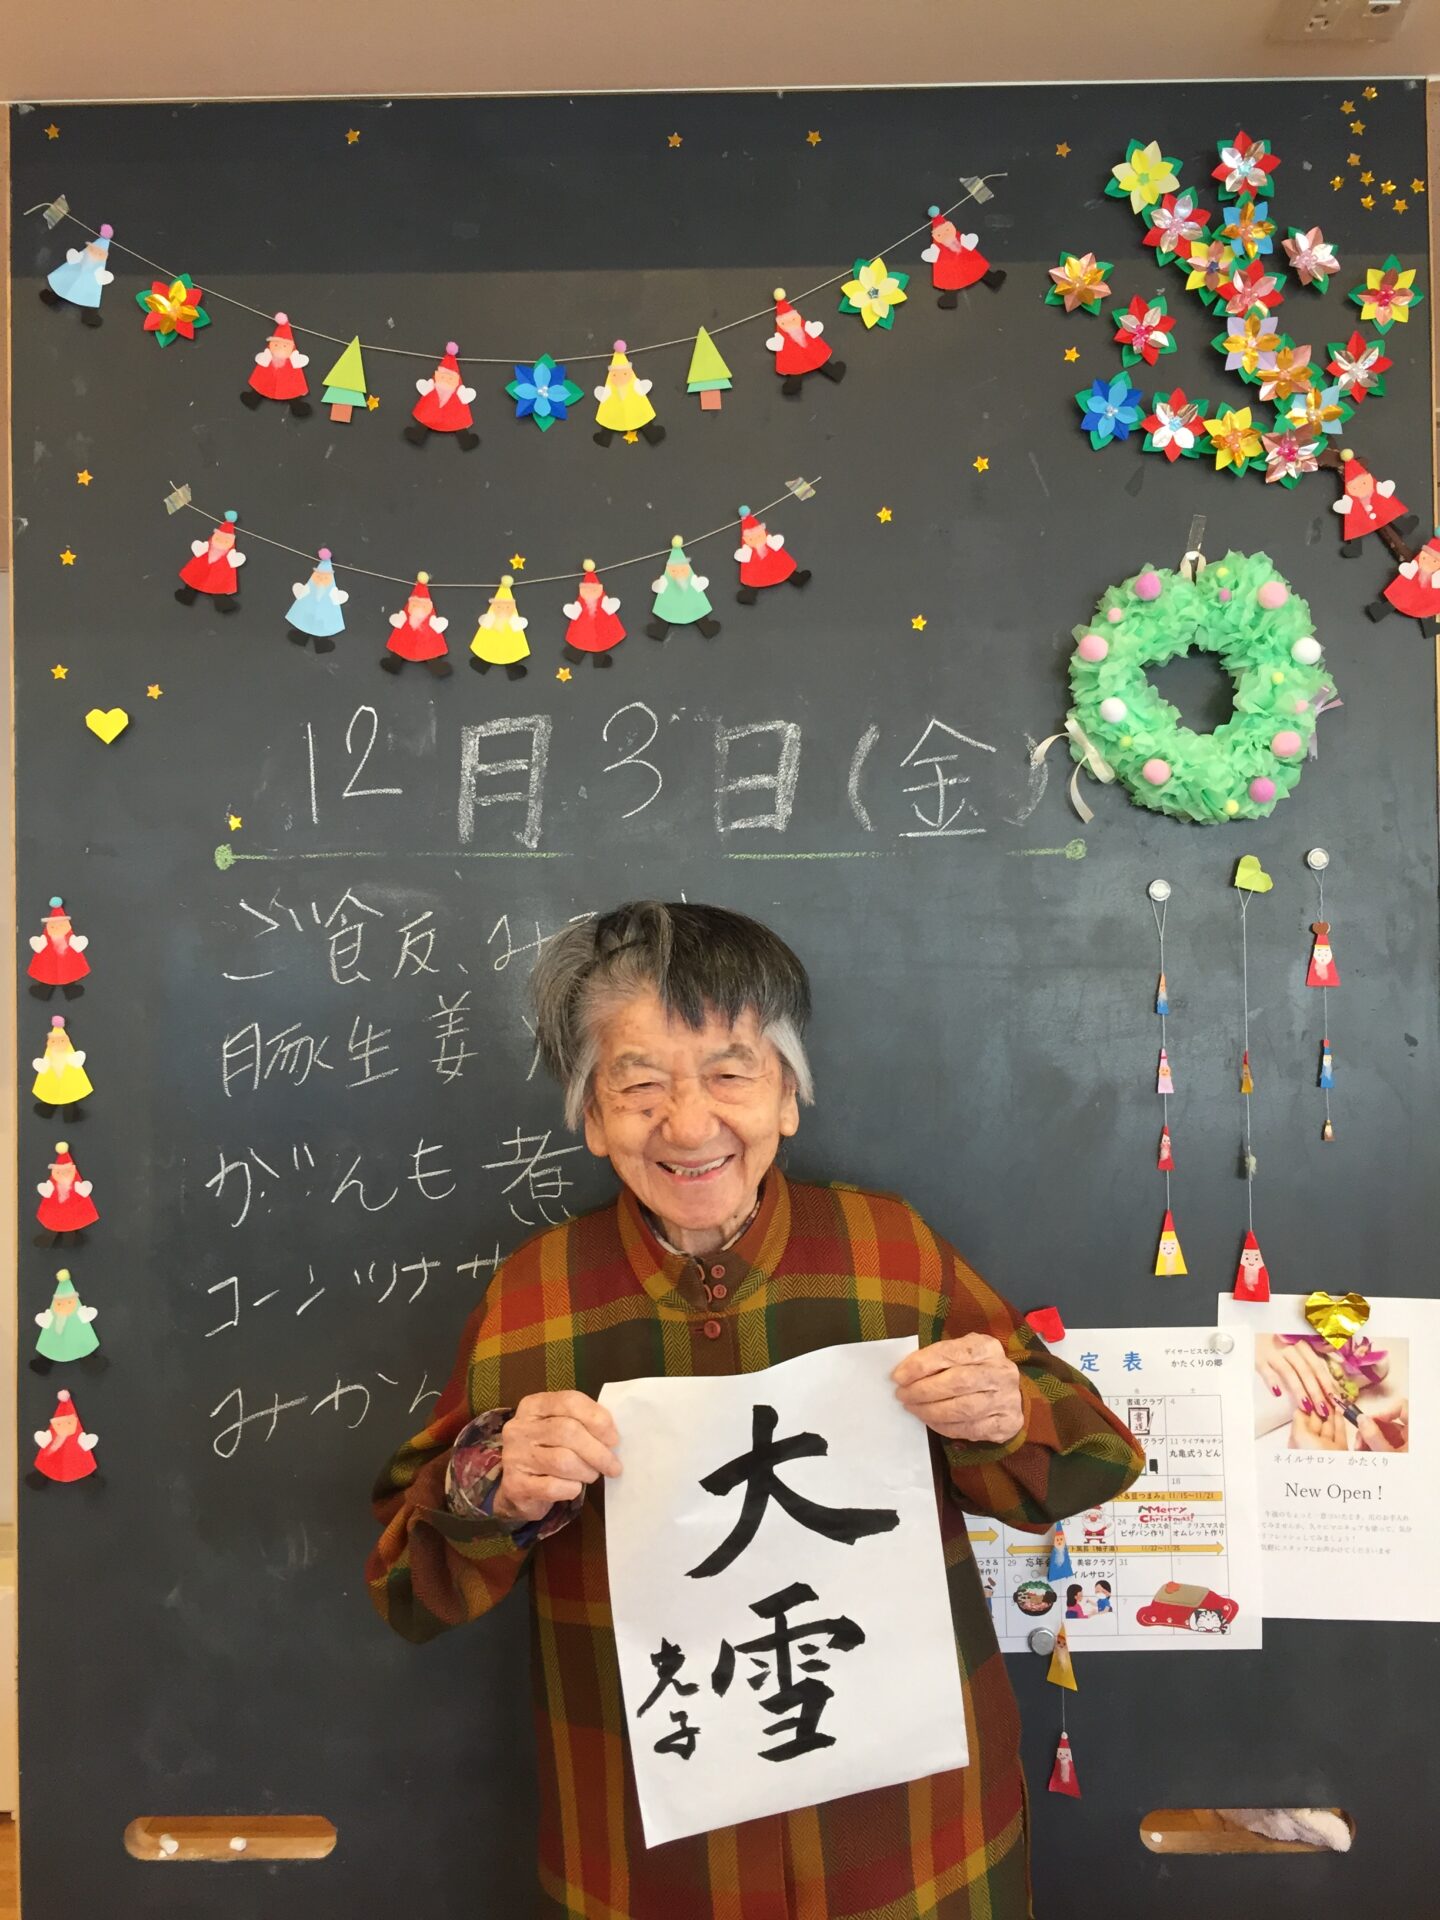 12月3日(金)
ご食反、み
豚生姜
がんも煮
コーンツナサ
みかん
大雪
光子
定表
デイサービスセン
かたくりの郷
土
3 書道クラブ
4
書道
道クラブ
11 ライブキッチン
丸亀式うどん
18
&豆つまみ』11/15~11/21
Merry
Christmas!
23
24
クリスマス会
ピザパン作り
クリスマス会
オムレット作り
ト風呂(柚子湯)
11/22~11/25
29
忘年会
美容クラブ
イルサロン
31
1
7
ネイルサロン かたくり
New Open !